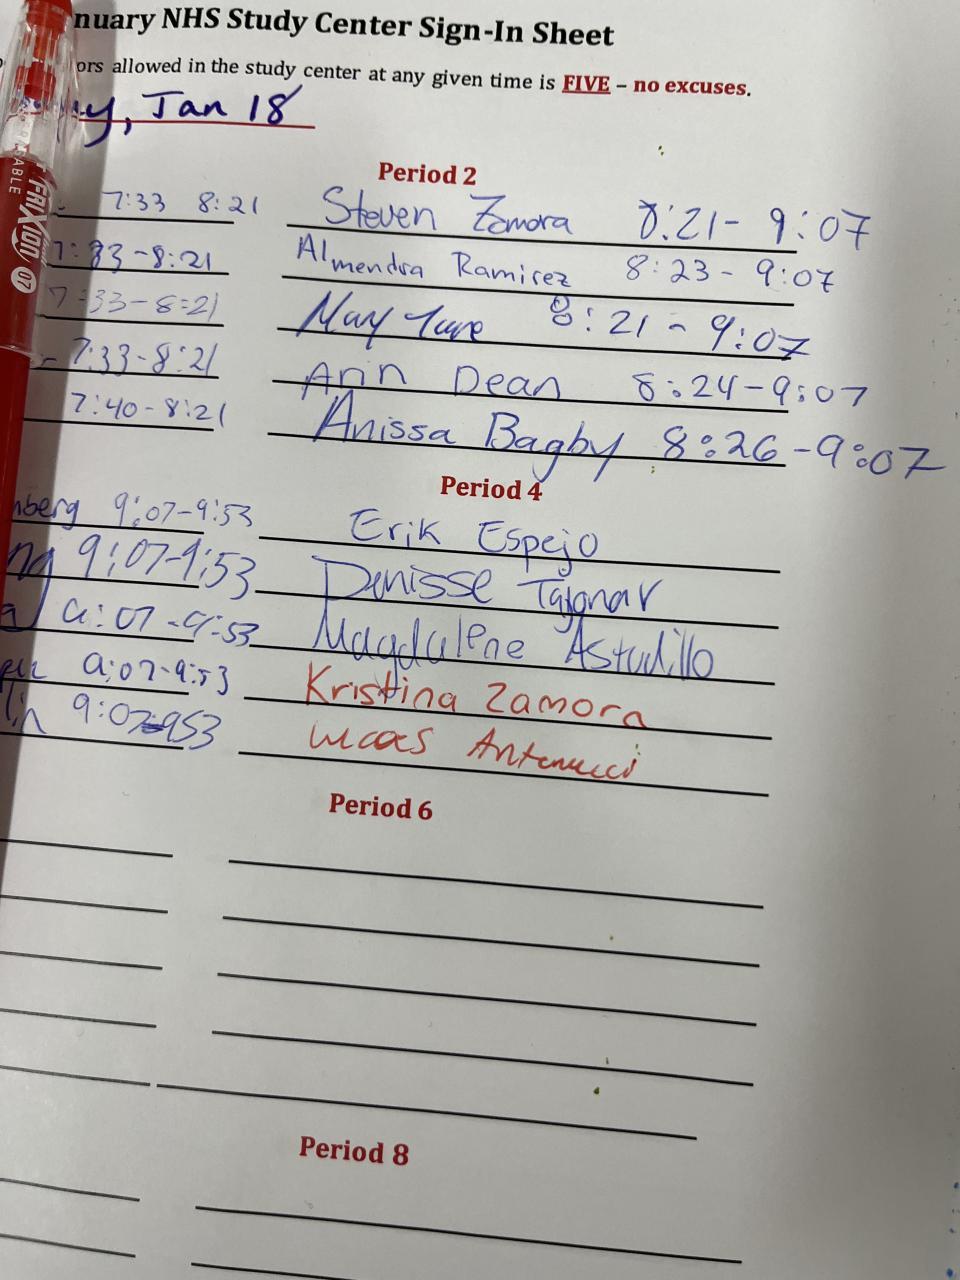 nuary NHS Study Center Sign-In Sheet
ors allowed in the study center at any given time is FIVE – no excuses.
y, Jan 18
Period 2
7:33 8:21 Steven Zamora 8:21- 9:07
7:33-8:21 Almendra Ramirez 8:23 - 9:07
7:33-8:21 May 8:21 - 9:07
7:33-8:21 Ann Dean 8:24-9:07
7:40-8:21 Anissa Bagby 8:26-9:07
Period 4
nberg 9:07-9:53 Erik Espejo
ng 9:07-9:53 Denisse Tajonar
a 9:07-9:53 Magdalene Astudillo
9:07-9:53 Kristina Zamora
lin 9:07-953 Lucas Antenucci
Period 6
Period 8
FRIXION 07
ABLE